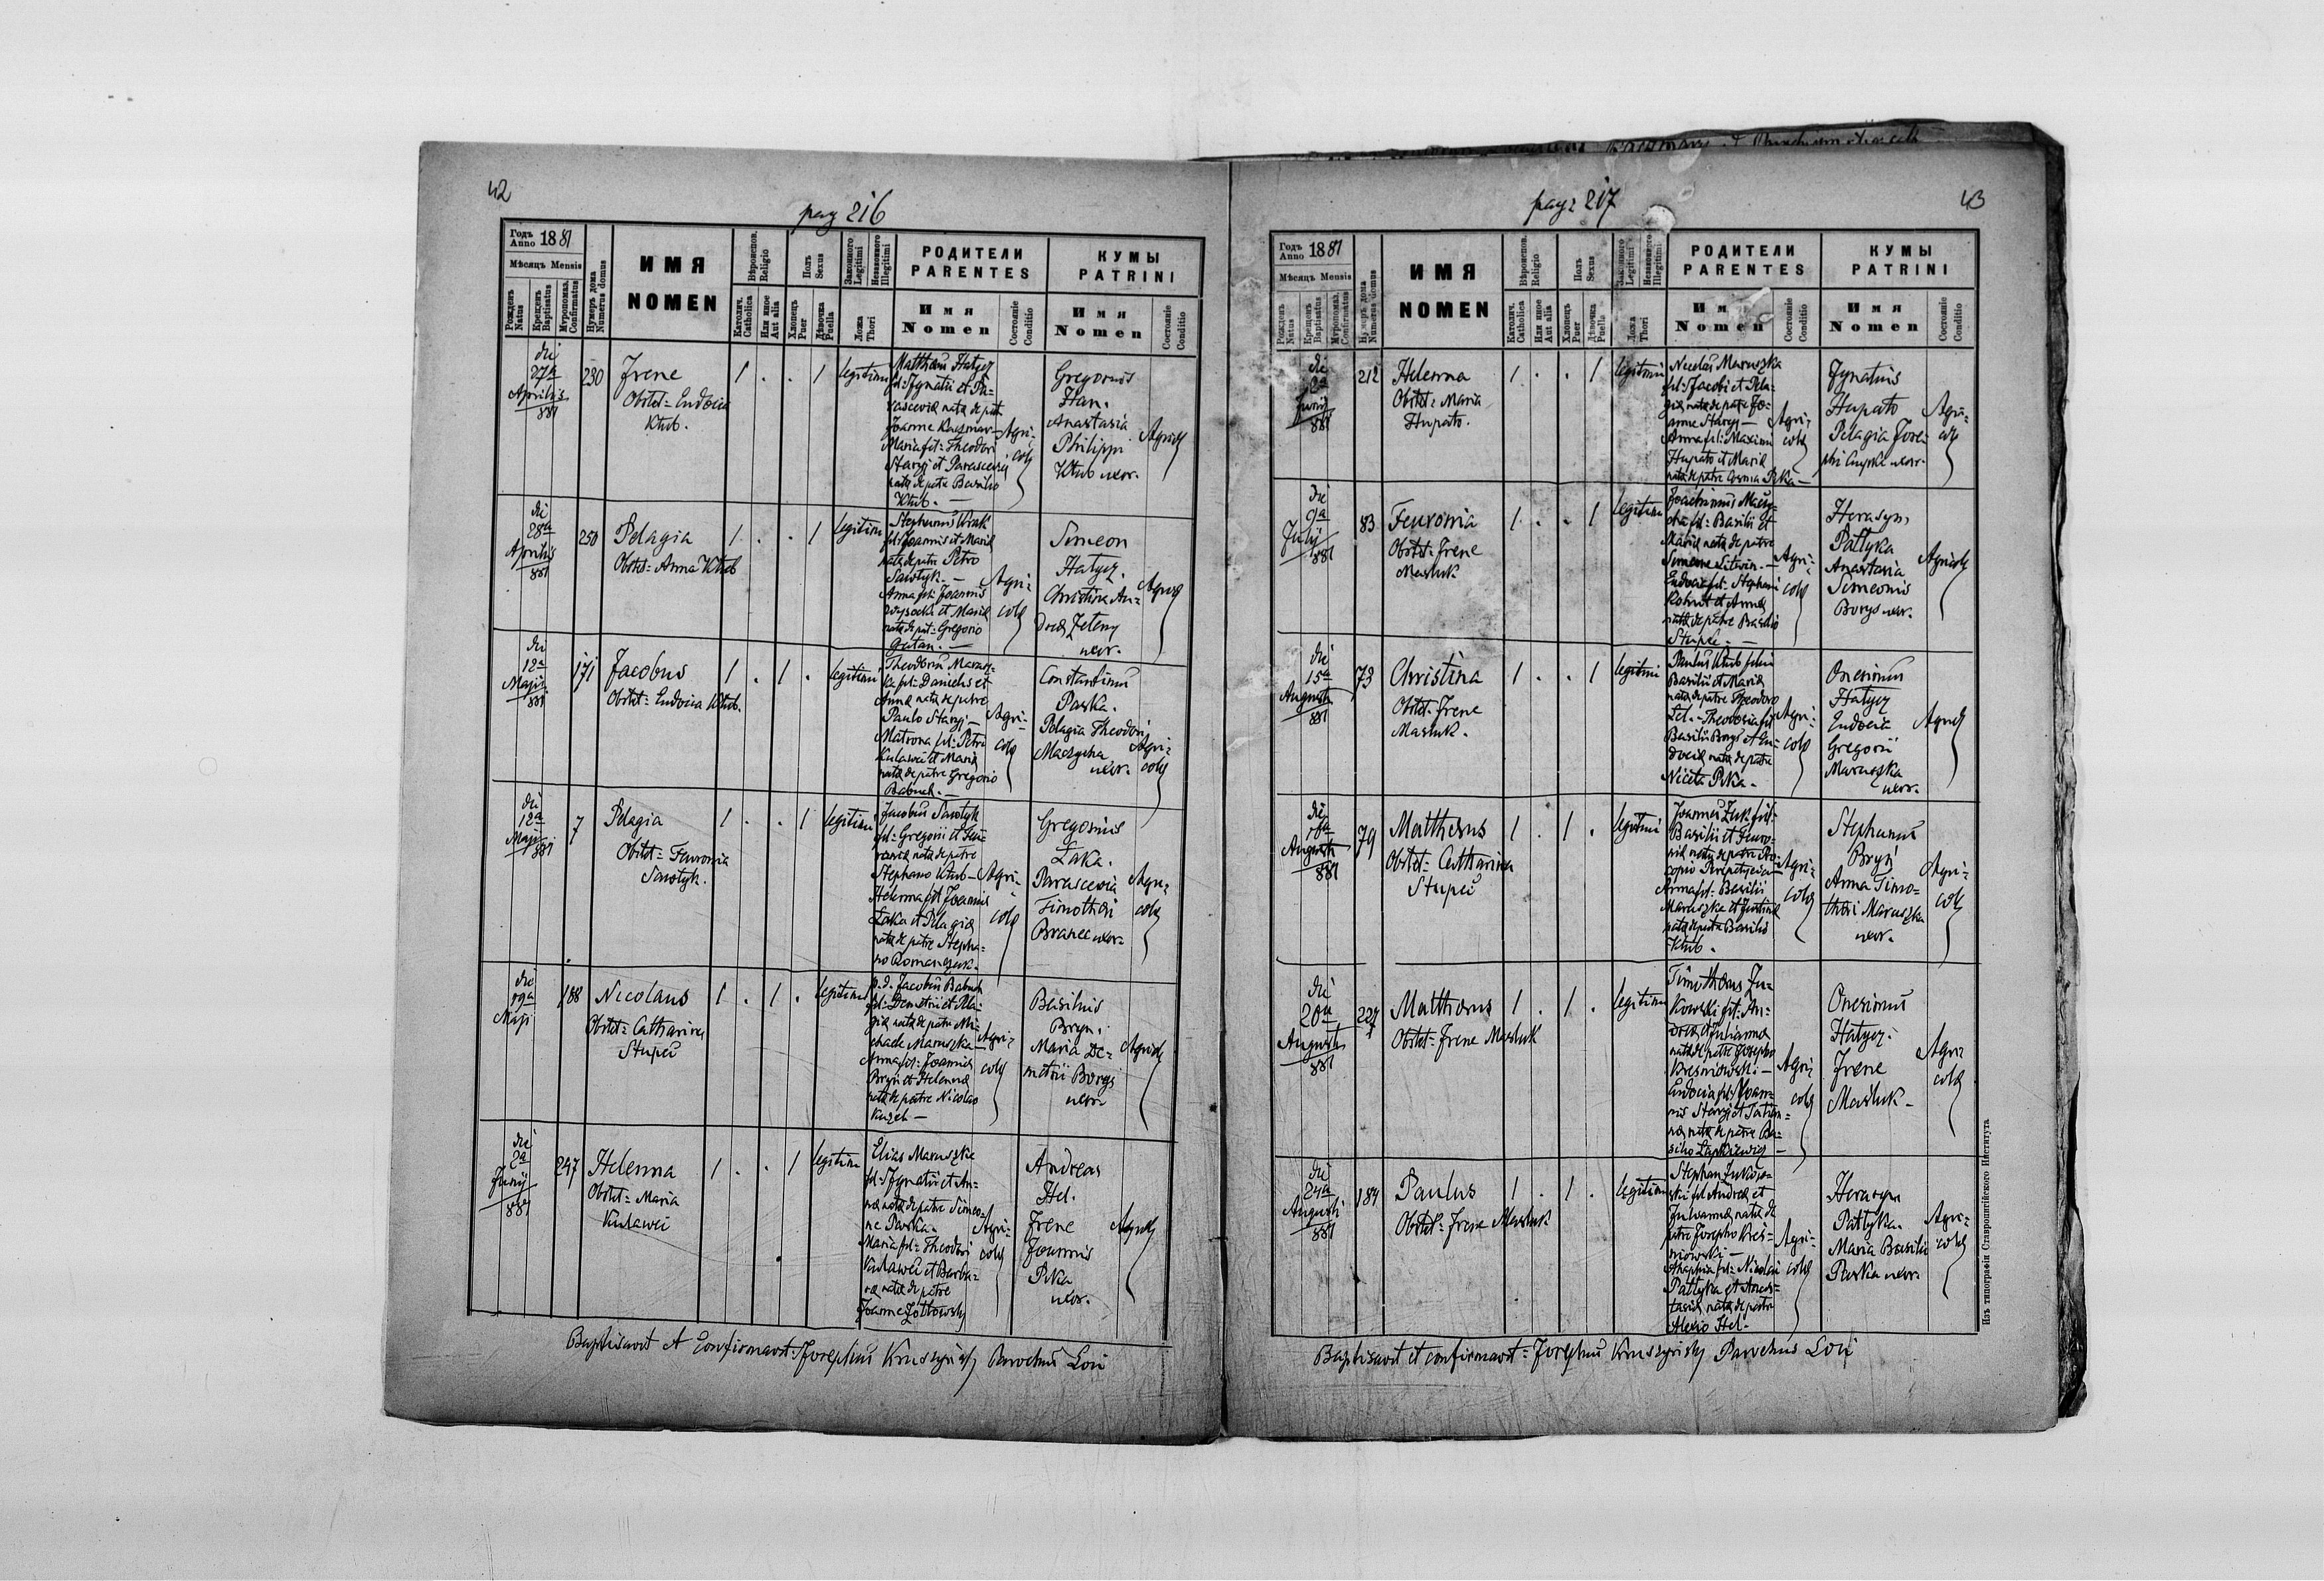 42
pag 216
Годъ
Anno 1881
Мѣсяцъ Mensis
Рожденъ
Natus
Крещенъ
Baptisatus
Муропомаз.
Confirmatus
Нумеръ дома
Numerus domus
ИМЯ
NOMEN
Вѣроиспов.
Religio
Католич.
Catholica
Или иное
Aut alia
Полъ
Sexus
Хлопецъ
Puer
Дѣвочка
Puella
Законного
Legitimi
Незаконного
Illegitimi
Ложа
Thori
РОДИТЕЛИ
PARENTES
Имя
Nomen
Состояніе
Conditio
КУМЫ
PATRINI
Имя
Nomen
Состояніе
Conditio
die
27a
Aprilis
881
230
Irene
Obstet= Eudocia
Ktub.
1 . . 1
legitimi
Matthaeus Hatycz
fil= Ignatii et Pa-
rasceviae nata de pat
Joanne Kaczmar-
Maria fil= Theodori
Staryj et Parasceviae
nata de patre Basilio
Ktub. —
Agri-
colae
Gregorius
Han.
Anastasia
Philippi
Ktub uxor.
Agricolae
die
28a
Aprilis
881
250
Pelagia
Obstet= Anna Ktub
1 . . 1
legitimi
Stephanus Krak
fil= Joannis et Maria
nata de patre Petro
Sawtyk. —
Anna fil= Joannis
Wysocki et Maria
nata de pat= Gregorio
Gutan. —
Agri-
colae
Simeon
Hatycz.
Christina An-
dreae Zeleny
uxor.
Agricolae
die
12a
Maji
881
171
Jacobus
Obstet= Eudocia Ktub.
1 . 1 .
legitimi
Theodorus Marusz-
ka fil= Danielis et
Anna nata de patre
Paulo Staryj —
Matrona fil= Petri
Kulawei et Maria
nata de patre Gregorio
Babuch. —
Agri-
colae
Constantinus
Paska.
Pelagia Theodori
Maczycha
uxor.
Agri-
colae
die
12a
Maji
881
7
Pelagia
Obstet= Feuronia
Sawtyk.
1 . . 1
legitimi
Jacobus Sawtyk
fil= Gregorii et Feu-
roniae nata de patre
Stephano Ktub —
Helenna fil= Joannis
Laka et Pelagia
nata de patre Stepha-
no Romanczuk.
Agri-
colae
Gregorius
Laka.
Parascevia
Timothei
Branec uxor
Agri-
colae
die
19a
Maji
188
Nicolaus
Obstet= Catharina
Stupci
1 . 1 .
legitimi
p.d. Jacobus Babuch
fil= Demetrii et Pela-
gia nata de patre Mi-
chaele Maruszka —
Anna fil= Joannis
Bryn et Helenna
nata de patre Nicolao
Kuzek —
Agri-
colae
Basilius
Bryn.
Maria De-
metrii Borys
uxor
Agricolae
die
2a
Junij
881
247
Helenna
Obstet= Maria
Kulawei
1 . . 1
legitimi
Elias Maruszka
fil= Ignatii et An-
na nata de patre Simeo-
ne Paska.
Maria fil= Theodori
Kulawei et Barba-
ra nata de patre
Joanne Zottowsky
Agri-
colae
Andreas
Hel.
Irene
Joannis
Pika
uxor.
Agricolae
Baptisavit et confirmavit: Josephus Kruszynsky Parochus Loci
pag: 217
43
Годъ
Anno 1881
Мѣсяцъ Mensis
Рожденъ
Natus
Крещенъ
Baptisatus
Муропомаз.
Confirmatus
Нумеръ дома
Numerus domus
ИМЯ
NOMEN
Вѣроиспов.
Religio
Католич.
Catholica
Или иное
Aut alia
Полъ
Sexus
Хлопецъ
Puer
Дѣвочка
Puella
Законного
Legitimi
Незаконного
Illegitimi
Ложа
Thori
РОДИТЕЛИ
PARENTES
Имя
Nomen
Состояніе
Conditio
КУМЫ
PATRINI
Имя
Nomen
Состояніе
Conditio
die
2a
Junij
881
212
Helenna
Obstet= Maria
Hupato.
1 . . 1
legitimi
Nicolaus Maruszka
fil= Jacobi et Pela-
gia nata de patre Jo-
anne Staryj —
Anna fil= Maximi
Hupato et Maria
nata de patre Cosma Pika —
Agri-
colae
Ignatius
Hupato
Pelagia Jose-
phi uxor.
Agri-
colae
die
9a
Julij
881
83
Feuronia
Obstet= Irene
Masluk
1 . . 1
legitimi
Joachimus Maczy-
cha fil= Basilii et
Maria nata de patre
Simeone Litwin. —
Eudocia fil= Stephani
Kohut et Anna
nata de patre Basilio
Stupci. —
Agri-
colae
Herasym
Pattyka
Anastasia
Simeonis
Borys uxor.
Agricolae
die
15a
Augusti
881
73
Christina
Obstet= Irene
Masluk.
1 . . 1
legitimi
Paulus Ktub filius
Basilii et Maria
nata de patre Theodoro
Hel. — Theodosia fil
Basilii Borys et Eu-
docia nata de patre
Niceta Pika. —
Agri-
colae
Onesimus
Hatycz
Eudocia
Gregorii
Maruszka
uxor.
Agricolae
die
16a
Augusti
881
79
Matthaeus
Obstet= Catharina
Stupci
1 . 1 .
legitimi
Joannes Zuk fil=
Basilii et Feuro-
nia nata de patre Pro-
copio
Anna fil= Basilii
Maruszka et Justina
nata de patre Basilio
Ktub.
Agri-
colae
Stephanus
Bryn
Anna Timo-
thei Maruszka
uxor.
Agri-
colae
die
20a
Augusti
881
227
Matthaeus
Obstet= Irene Masluk
1 . 1 .
legitimi
Timotheus Zu-
kowski fil= An-
dreae et Julianna
nata de patre Josepho
Kresniowski —
Eudocia fil= Joan-
nis Staryj et Tatian-
na nata de patre Ba-
silio Lapkiewicz —
Agri-
colae
Onesimus
Hatycz.
Irene
Masluk —
Agri-
colae
die
24a
Augusti
881
184
Paulus
Obstet= Irene Masluk
1 . 1 .
legitimi
Stephan Zukow-
ski fil Andreae et
Julianna nata de
patre Josepho Kres-
niowski —
Agaphia fil= Nicolai
Pattyka et Anas-
tasia nata de patre
Alexio Hel.
Agri-
colae
Herasym
Pattyka.
Maria Basilii
Paska uxor
Agri-
colae
Baptisavit et confirmavit= Josephus Kruszynsky Parochus Loci
Изъ типографіи Ставропигійского Института